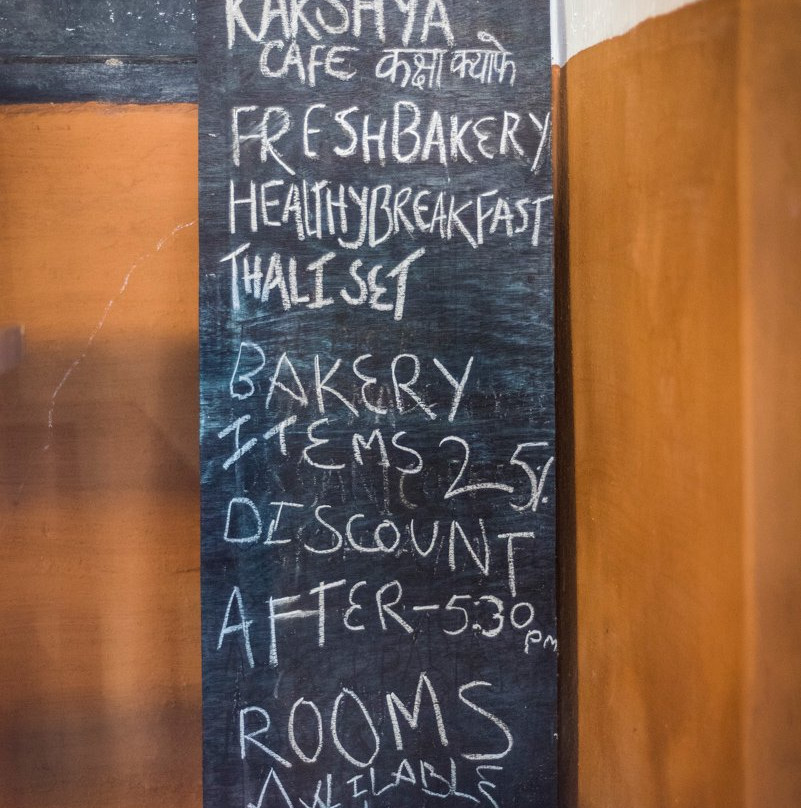 KAKSHYA
CAFE कक्षा क्याफे
FRESH BAKERY
HEALTHY BREAKFAST
THALI SET
BAKERY
ITEMS 25%
DISCOUNT
AFTER-5:30 pm
ROOMS
AVAILABLE